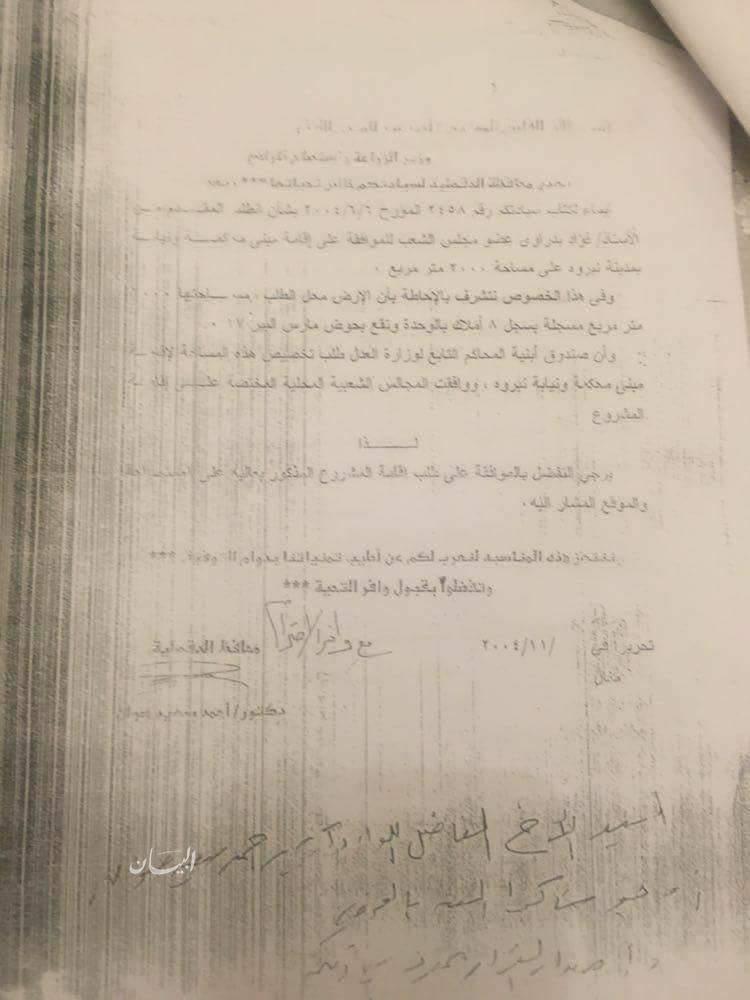 وزير الزراعة واستصلاح الأراضي
تهدي محافظة الدقهلية لسيادتكم خالص تحياتها *** وبعد
إيماء لكتاب سيادتكم رقم ٢٤٥٨ المؤرخ ٢٠٠٤/٦/٦ بشأن الطلب المقدم من
الأستاذ/ فؤاد بدراوى عضو مجلس الشعب للموافقة على إقامة مبنى محكمة ونيابة
بمدينة نبروه على مساحة ٢٠٠٠ متر مربع .
وفى هذا الخصوص نتشرف بالإحاطة بأن الأرض محل الطلب ومساحتها
متر مربع مسجلة بسجل ٨ أملاك بالوحدة وتقع بحوض مارس البير ١٧ .
وأن صندوق أبنية المحاكم التابع لوزارة العدل طلب تخصيص هذه المساحة لإقامة
مبنى محكمة ونيابة نبروه ، ووافقت المجالس الشعبية المحلية المختصة على إقامة
المشروع
لـــــذا
يرجى التفضل بالموافقة على طلب إقامة المشروع المذكور بعاليه على المساحة
والموقع المشار اليه .
هذه المناسبة لنعرب لكم عن أطيب تمنياتنا بدوام التوفيق ***
وتفضلوا بقبول وافر التحية ***
مع وافر الاحترام
تحريرا فى / ٢٠٠٤/١١
محافظ الدقهلية
دكتور/ أحمد سعيد صوان
السيد الأخ الفاضل اللواء
أرجو شاكرا
البيان